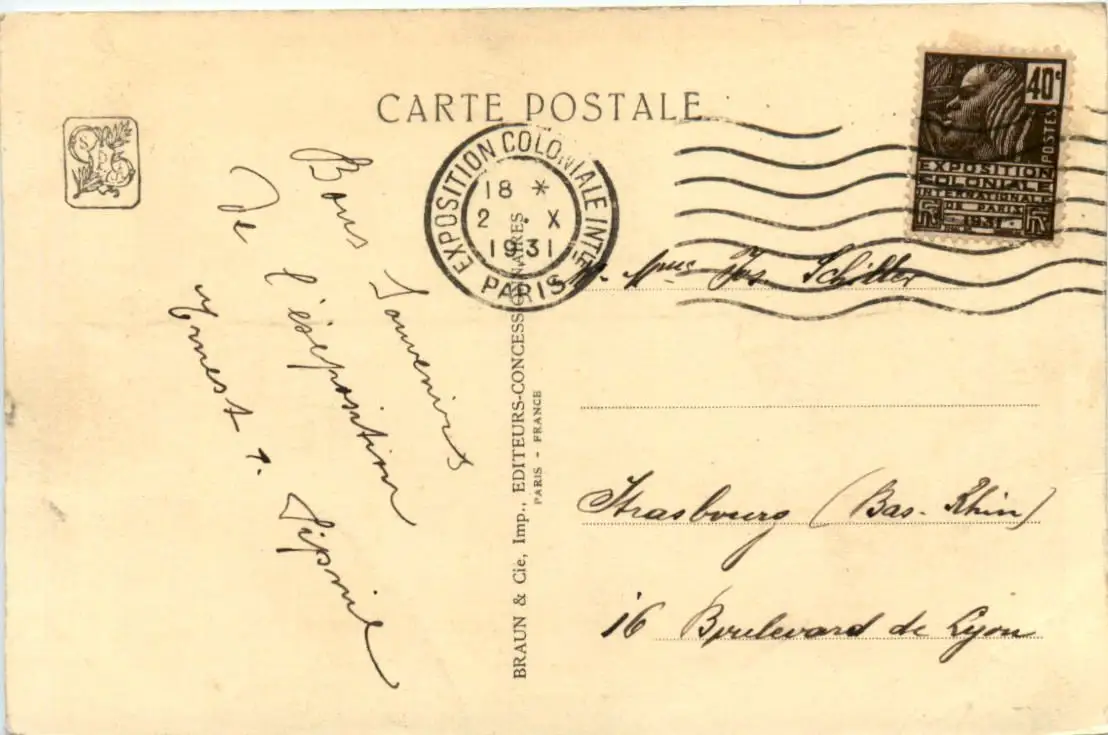 CARTE POSTALE
40c
POSTES
EXPOSITION
COLONIALE
INTERNATIONALE
DE PARIS
1931
EXPOSITION COLONIALE INTLE
18 *
2 . X
1931
PARIS
Bons Souvenirs
de l'exposition
Ernest +
BRAUN & Cie, Imp., EDITEURS-CONCESSIONNAIRES
PARIS - FRANCE
Jos. Schiller
Strasbourg (Bas-Rhin)
16 Boulevard de Lyon